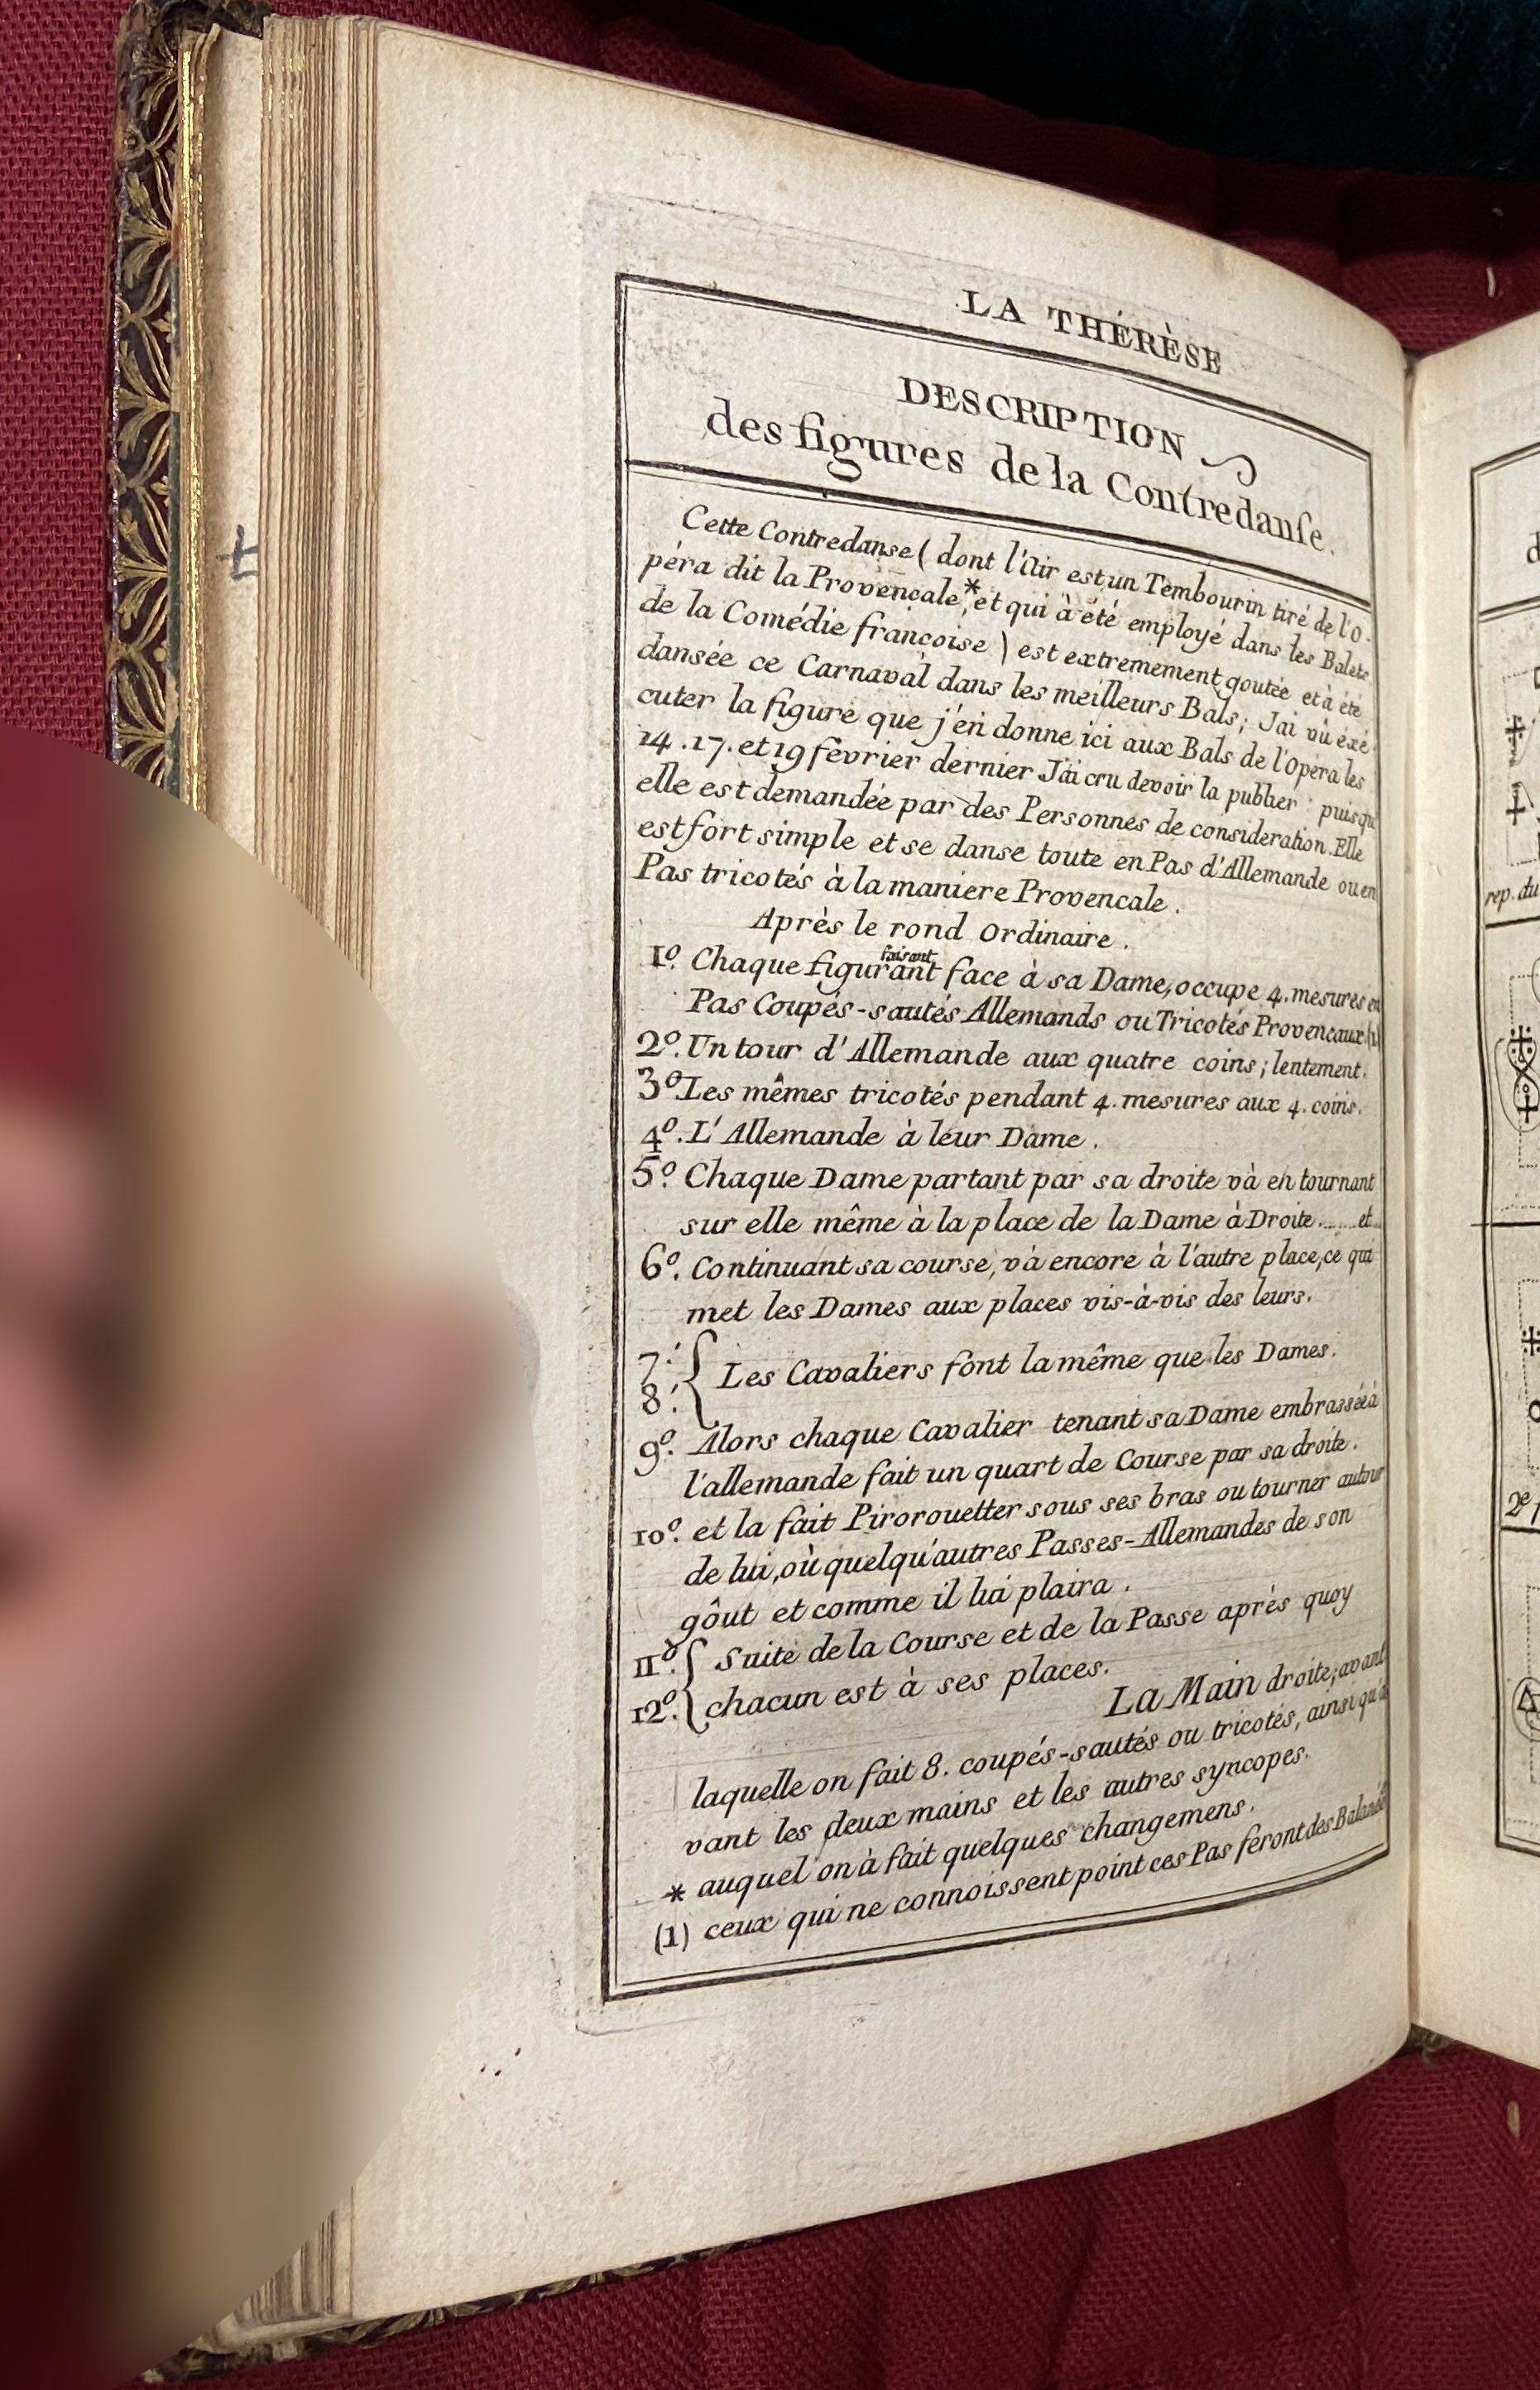 LA THÉRÈSE
DESCRIPTION
des figures de la Contredanse.
Cette Contredanse ( dont l'Air est un Tembourin tiré de l'O-
péra dit la Provençale,* et qui à été employé dans les Balets
de la Comédie françoise ) est extremement goutée et à été
dansée ce Carnaval dans les meilleurs Bals; J'ai vû exé-
cuter la figure que j'en donne ici aux Bals de l'Opera les
14. 17. et 19 fevrier dernier J'ai cru devoir la publier : puisqu'
elle est demandée par des Personnes de consideration. Elle
est fort simple et se danse toute en Pas d'Allemande ou en
Pas tricotés à la maniere Provencale.
Après le rond Ordinaire.
1º. Chaque figurant faisant face à sa Dame, occupe 4. mesures en
Pas Coupés-sautés Allemands ou Tricotés Provencaux (1)
2º. Un tour d'Allemande aux quatre coins; lentement.
3º Les mêmes tricotés pendant 4. mesures aux 4. coins.
4º. L'Allemande à leur Dame.
5º. Chaque Dame partant par sa droite và en tournant
sur elle même à la place de la Dame à Droite ...... et
6º. Continuant sa course, và encore à l'autre place, ce qui
met les Dames aux places vis-à-vis des leurs.
7.
8. { Les Cavaliers font la même que les Dames.
9º. Alors chaque Cavalier tenant sa Dame embrassée à
l'allemande fait un quart de Course par sa droite.
10º. et la fait Pirorouetter sous ses bras ou tourner autour
de lui, où quelqu'autres Passes-Allemandes de son
gôut et comme il lui plaira.
11º. { Suite de la Course et de la Passe après quoy
12º. chacun est à ses places.
La Main droite; avant
laquelle on fait 8. coupés-sautés ou tricotés, ainsi qu'a
vant les deux mains et les autres syncopes.
* auquel on à fait quelques changemens.
(1) ceux qui ne connoissent point ces Pas feront des Balancés
rep. du